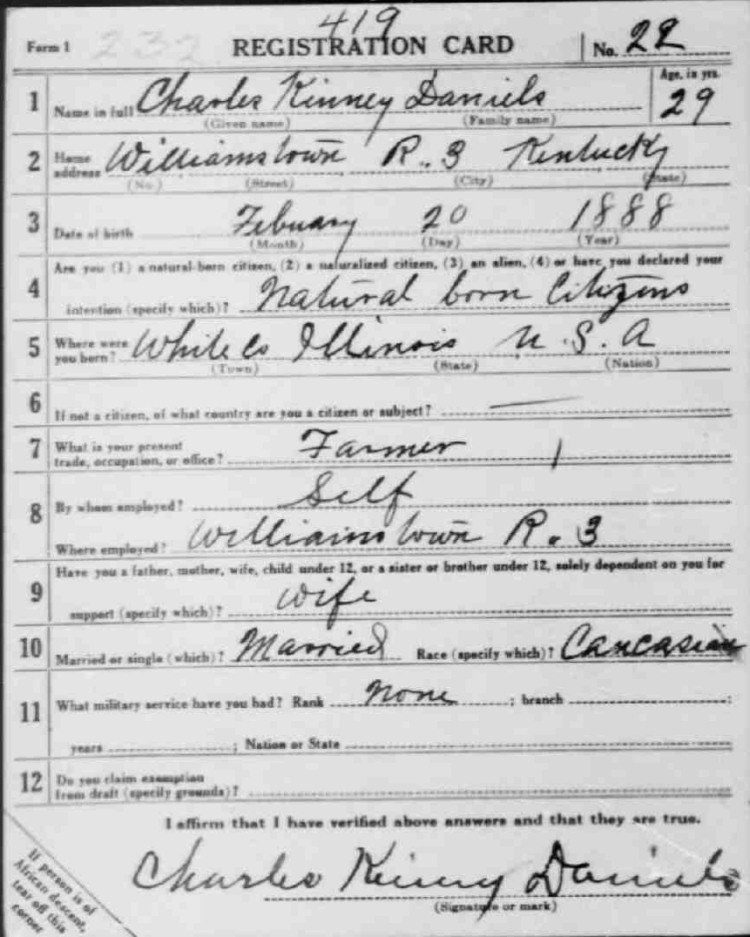 419
Form 1 232 REGISTRATION CARD No. 22
1 Name in full Charles Kinney Daniels Age, in yrs. 29
(Given name) (Family name)
2 Home address Williamstown R. 3 Kentucky
(No.) (Street) (City) (State)
3 Date of birth Febuary 20 1888
(Month) (Day) (Year)
Are you (1) a natural-born citizen, (2) a naturalized citizen, (3) an alien, (4) or have you declared your
4 intention (specify which)? Natural born Citizens
5 Where were you born? White Co Illinois U.S.A
(Town) (State) (Nation)
6 If not a citizen, of what country are you a citizen or subject?
7 What is your present trade, occupation, or office? Farmer
8 By whom employed? Self
Where employed? Williamstown R. 3
9 Have you a father, mother, wife, child under 12, or a sister or brother under 12, solely dependent on you for
support (specify which)? Wife
10 Married or single (which)? Married Race (specify which)? Caucasian
11 What military service have you had? Rank None ; branch ;
years ; Nation or State
12 Do you claim exemption
from draft (specify grounds)?
I affirm that I have verified above answers and that they are true.
Charles Kinney Daniels
(Signature or mark)
If person is of
African descent,
tear off this
corner